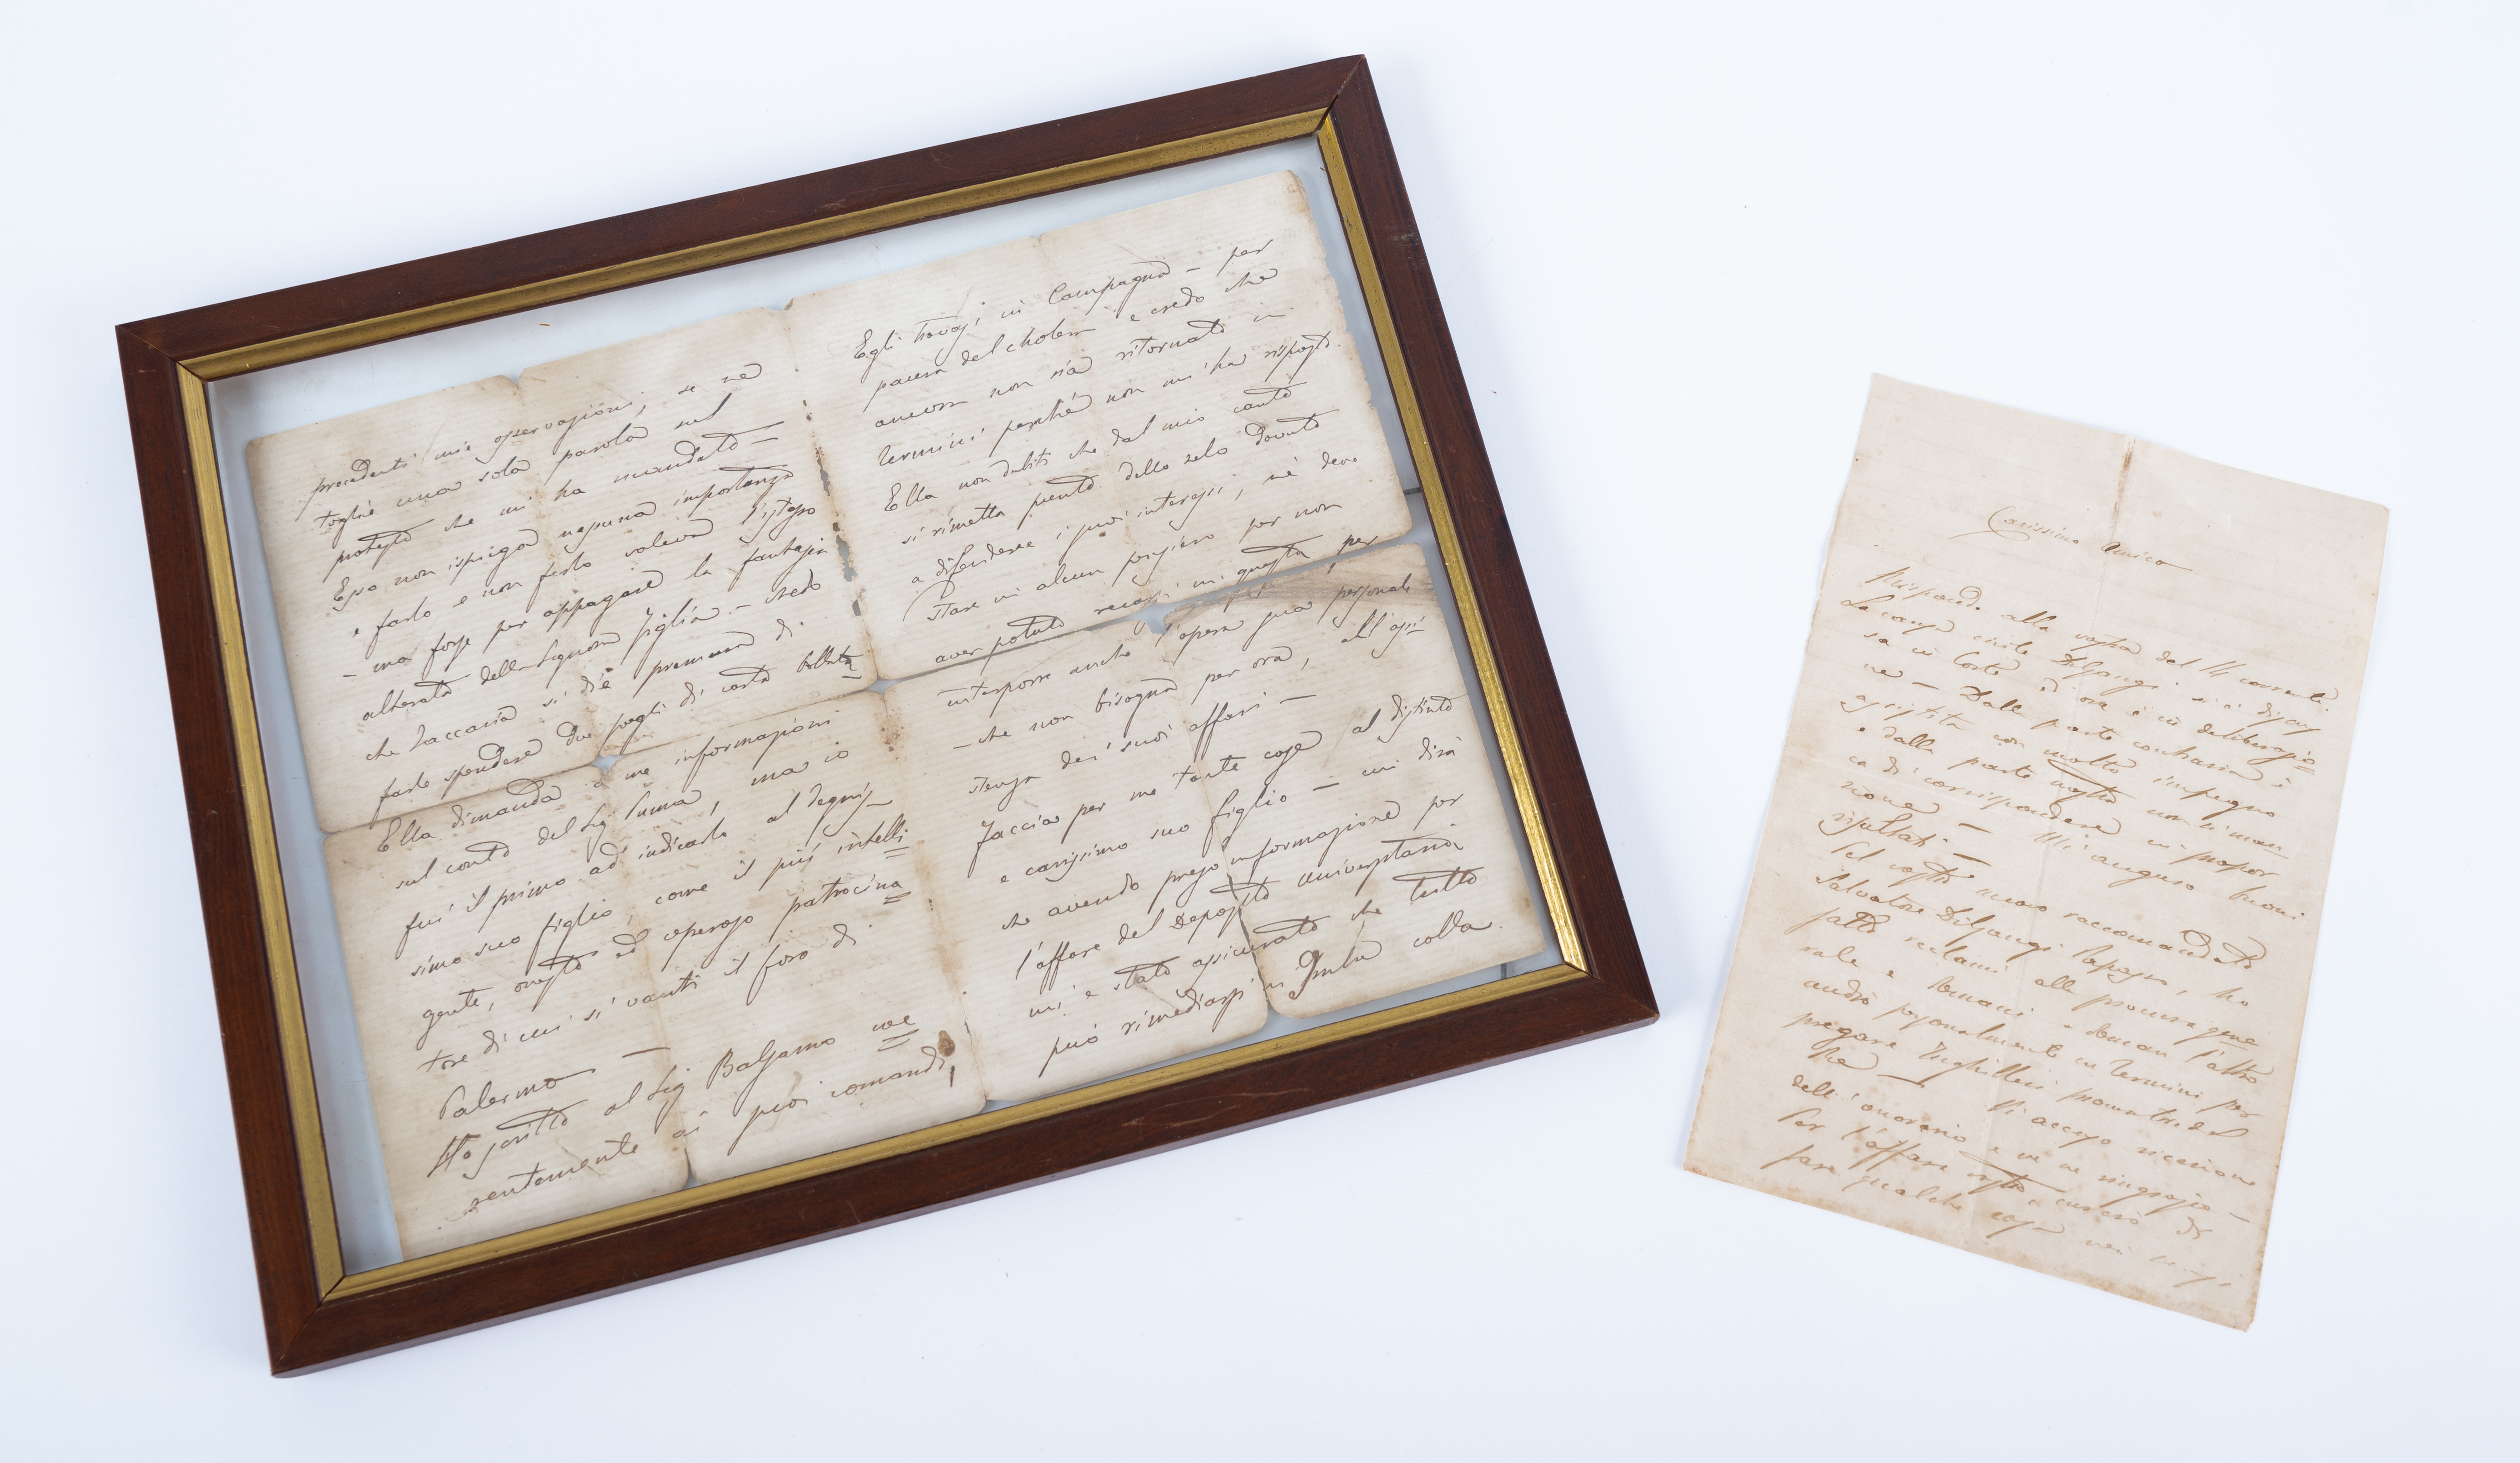 precedenti mie osservazioni, se ne
togliè una sola parola sul
protesto che mi ha mandato —
Esso non ispiega nessuna importanza
e farlo e non farlo valeva l'istesso
— ma forse per appagare la fantasia
alterata della Signora figlia — credo
che Zaccaria si diè premura di
farle spendere due fogli di carta bollata
Ella dimanda a me informazioni
sul conto del Sig Puma, ma io
fui il primo ad indicarlo al degnis
simo suo figlio, come il più intelli
gente, onesto ed operoso patrocina
tore di cui si vanti il foro di
Palermo —
Ho scritto al Sig Balsamo
centemente ai suoi comandi,
Egli trovasi in Campagna — per
paura del cholera e credo che
ancora non sia ritornato in
Termini perché non mi ha risposto.
Ella non dubiti che dal mio canto
si rimetta punto dello zelo dovuto
a difendere i suoi interessi, nè deve
stare in alcun pensiero per non
aver potuto recarsi in questa, per
interporre anche l'opera sua personale
— che non bisogna per ora, all'assi
stenza dei suoi affari —
Faccia per me tante cose al distinto
e carissimo suo figlio — mi dirà
che avendo preso informazione per
l'affare del Deposito universitario
mi è stato assicurato che tutto
può rimediarsi in colla.
Carissimo Amico
Rispondo alla vostra del 14 corrente.
La causa civile Dilfangi si è discus
sa in Corte ed ora è in deliberazio
ne — Dalla parte contraria è
assistita con molto impegno
e dalla parte nostra non si man
ca di corrispondere in propor
zione — Mi auguro buoni
risultati —
Pel vostro nuovo raccomandato
Salvatore Dilfangi Papasso, ho
fatto reclami alla procura gene
rale e domani o doman l'altro
andrò personalmente in Termini per
pregare
Vi accuso ricezione
dell'onorario e ve ne ringrazio —
Per l'affare vostro curerò di
fare qualche cosa